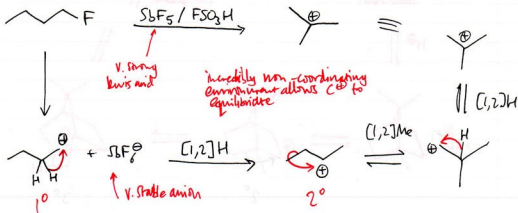 F
SbF5 / FSO3H
⊕
v. strong
lewis acid
incredibly non-coordinating
environment allows C⊕ to
equilibrate
⊕
[1,2]H
⊕
H
H
1°
+ SbF6⊖
v. stable anion
[1,2]H
⊕
2°
[1,2]Me
⊕
H